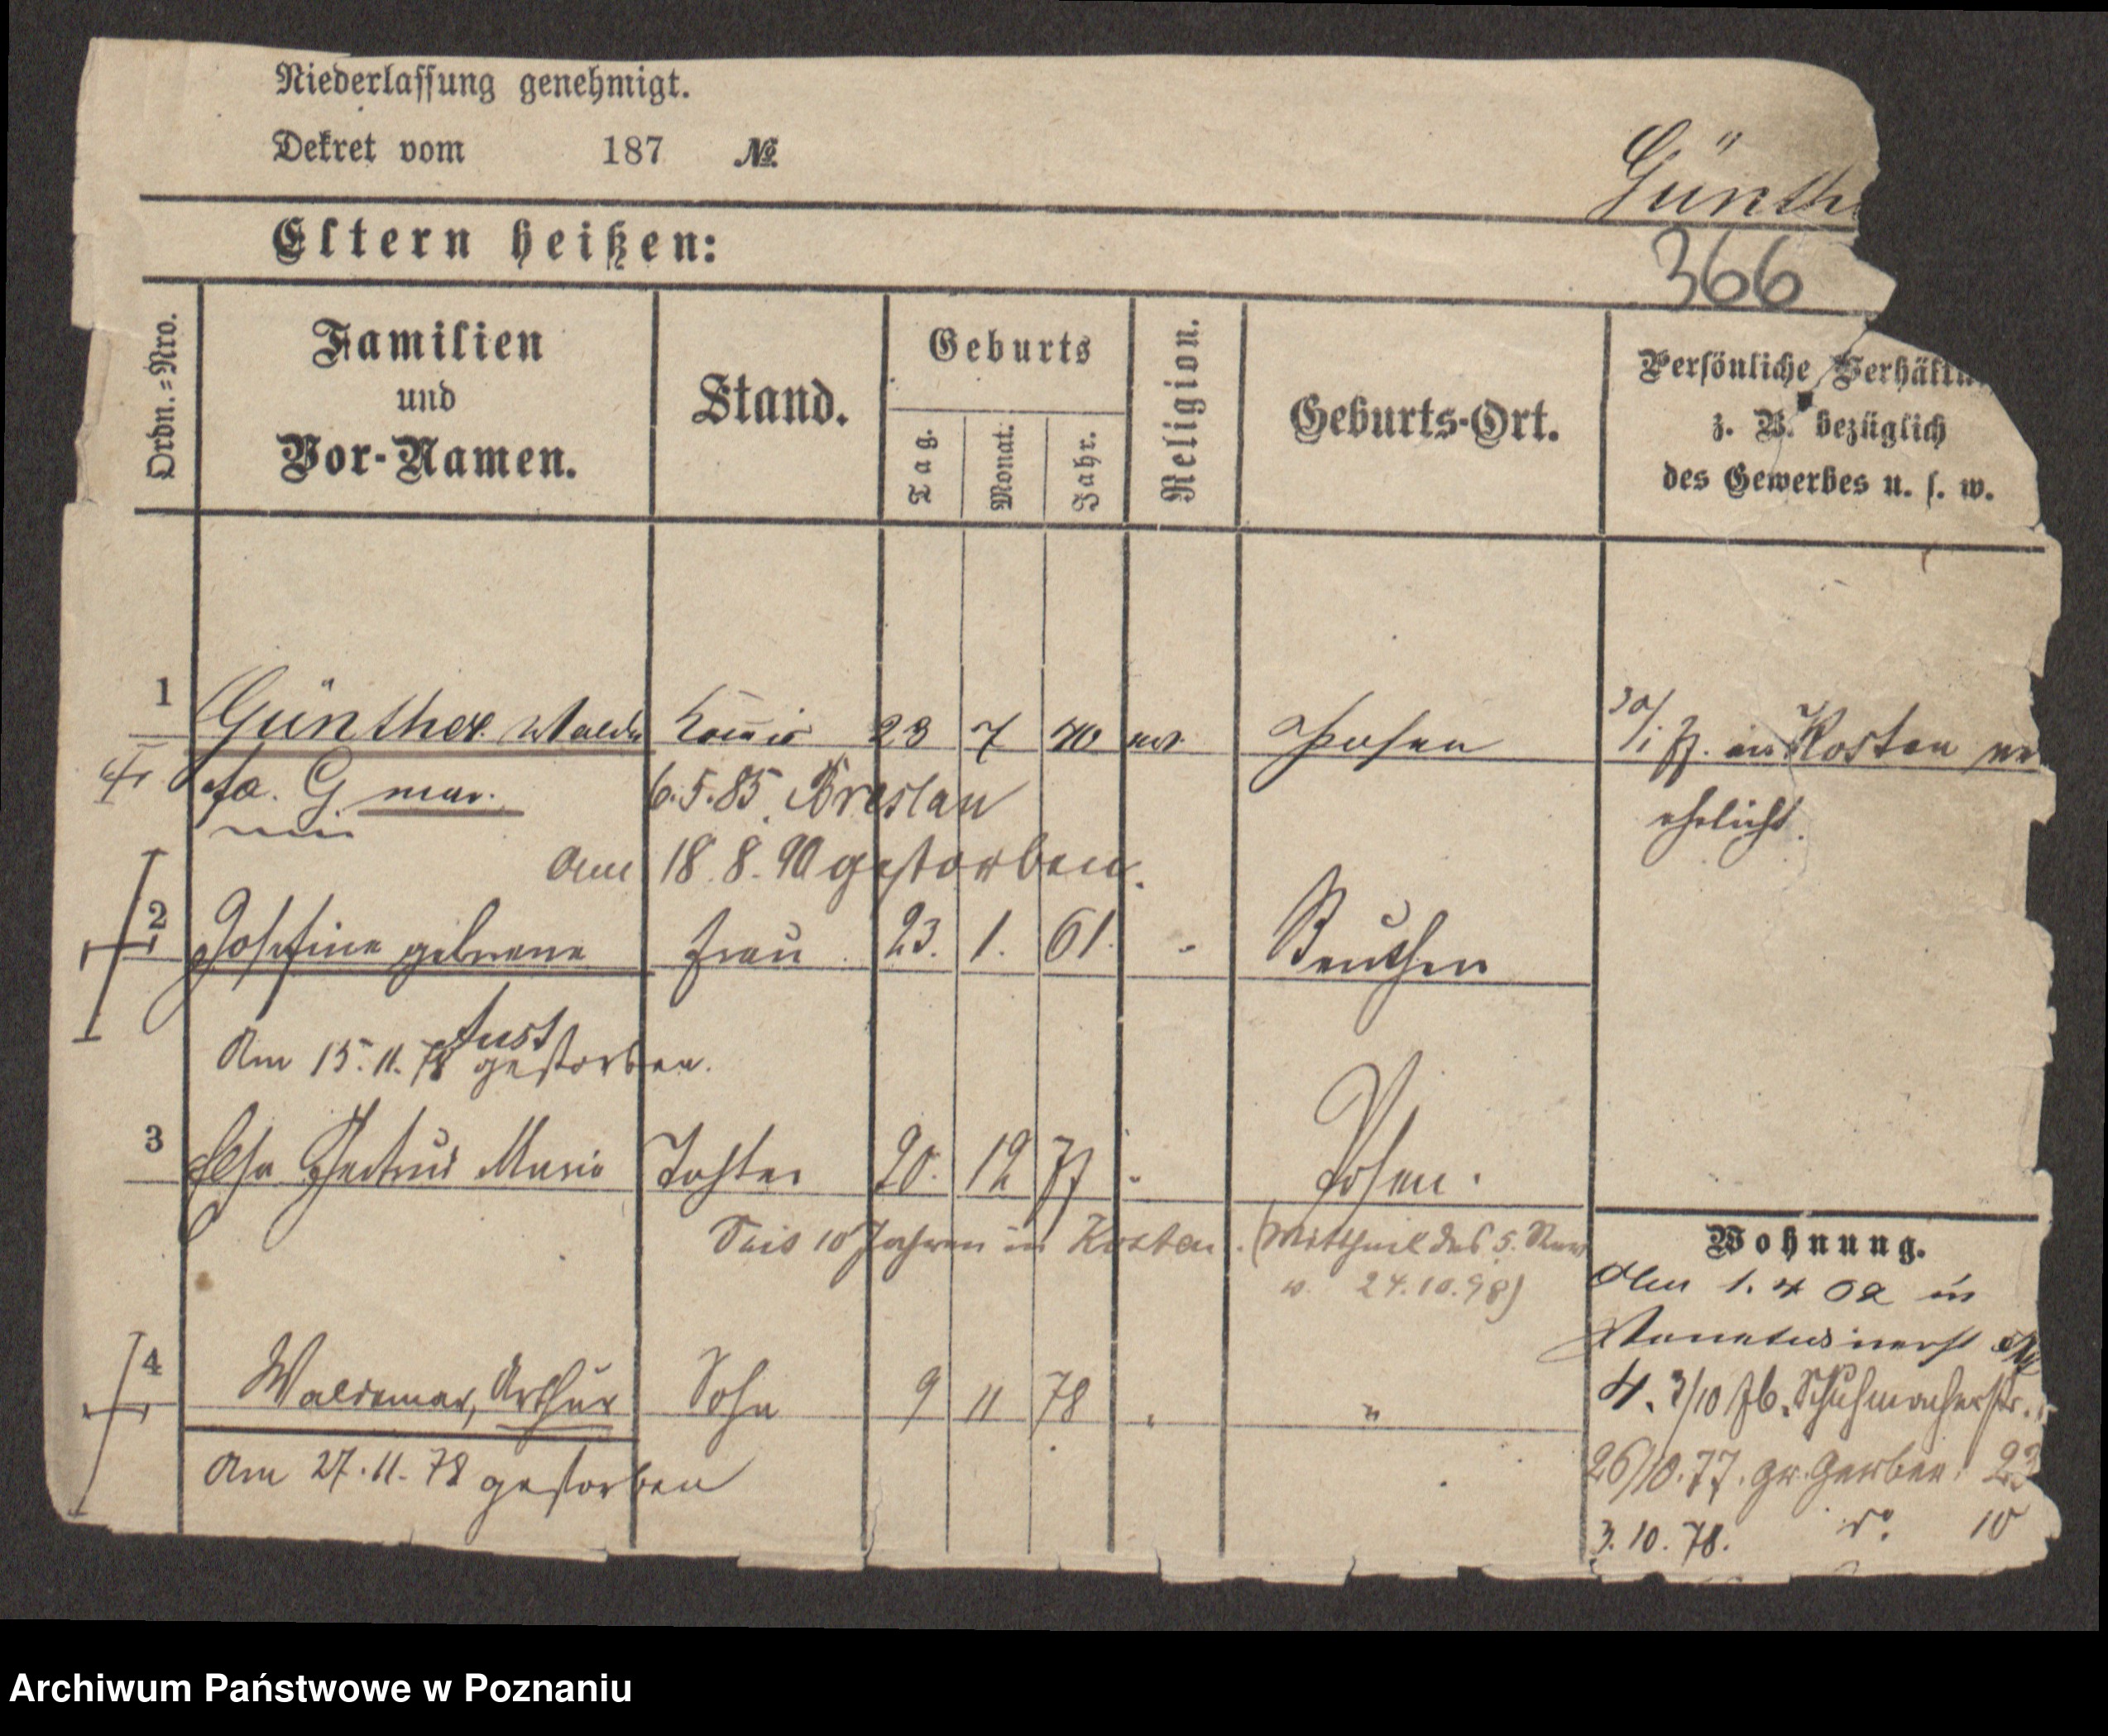 Niederlassung genehmigt.
Dekret vom 187 №
Günth
Eltern heißen:
366
Ordn.=Nro.
Familien und Vor-Namen.
Stand.
Geburts
Tag. Monat. Jahr.
Religion.
Geburts-Ort.
Persönliche Verhältn
z. B. bezüglich
des Gewerbes u. s. w.
1 Günther Walde Kom̄is 23 7 ev. Posen
30/1 in Kosten ver
fa. G. 6.5.85. Breslau
ehelicht.
am 18.8.90 gestorben.
2 Josefine geborene Frau 23. 1. 61. " Beuthen
Just
Am 15.11.78 gestorben.
3 Elsa Gertrud Marie Tochter 20. 12 77 " Posen.
Seit 10 Jahren in Kosten. (Mittheil des 5. Rev
v. 24.10.98)
Wohnung.
Am 1. 4 02 in
4. 3/10 76. Schuhmacherstr.
4 Waldemar, Arthur Sohn 9 11 78 " "
26/10.77. gr. Gerber. 23
Am 27.11.78 gestorben
3.10.78. do 10
Archiwum Państwowe w Poznaniu